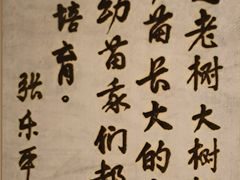 老树大树
苗长大的
幼苗我们都
培育。
张乐平